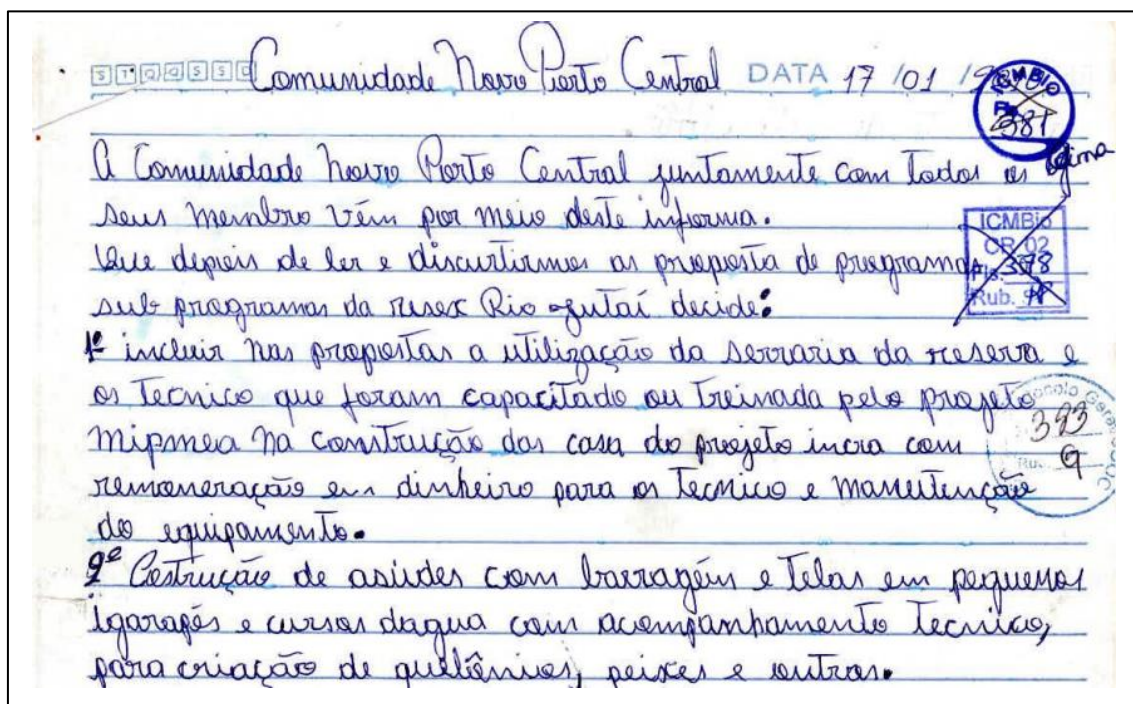 S T Q Q S S D Comunidade Novo Porto Central DATA 17 /01 /
ICMBIO
381
A Comunidade Novo Porto Central juntamente com todos os
seus membro vém por meio deste informa.
ICMBio
CR 02
Que depois de ler e discurtirmos as proposta de programas
Fls. 378
sub programas da resex Rio Jutaí decide:
Rub.
1º incluir nas propostas a utilização da serraria da reserva e
os tecnico que foram capacitado ou treinada pelo projeto
393
mipmea na construção das casa do projeto incra com
remoneração em dinheiro para os tecnico e manutenção
do equipamento.
2º Costrução de asúdes com barragéns e telas em pequenos
igarapés e cursos dagua com acompanhamento tecnico,
para criação de quelônios, peixes e outros.